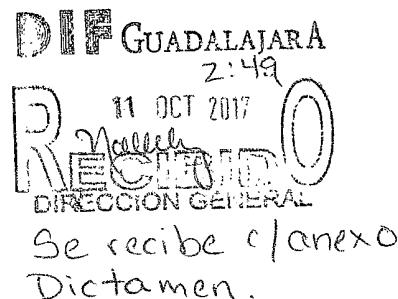 DIF GUADALAJARA
2:49
11 OCT 2017
RECIBIDO
DIRECCIÓN GENERAL
Se recibe c/anexo
Dictamen.